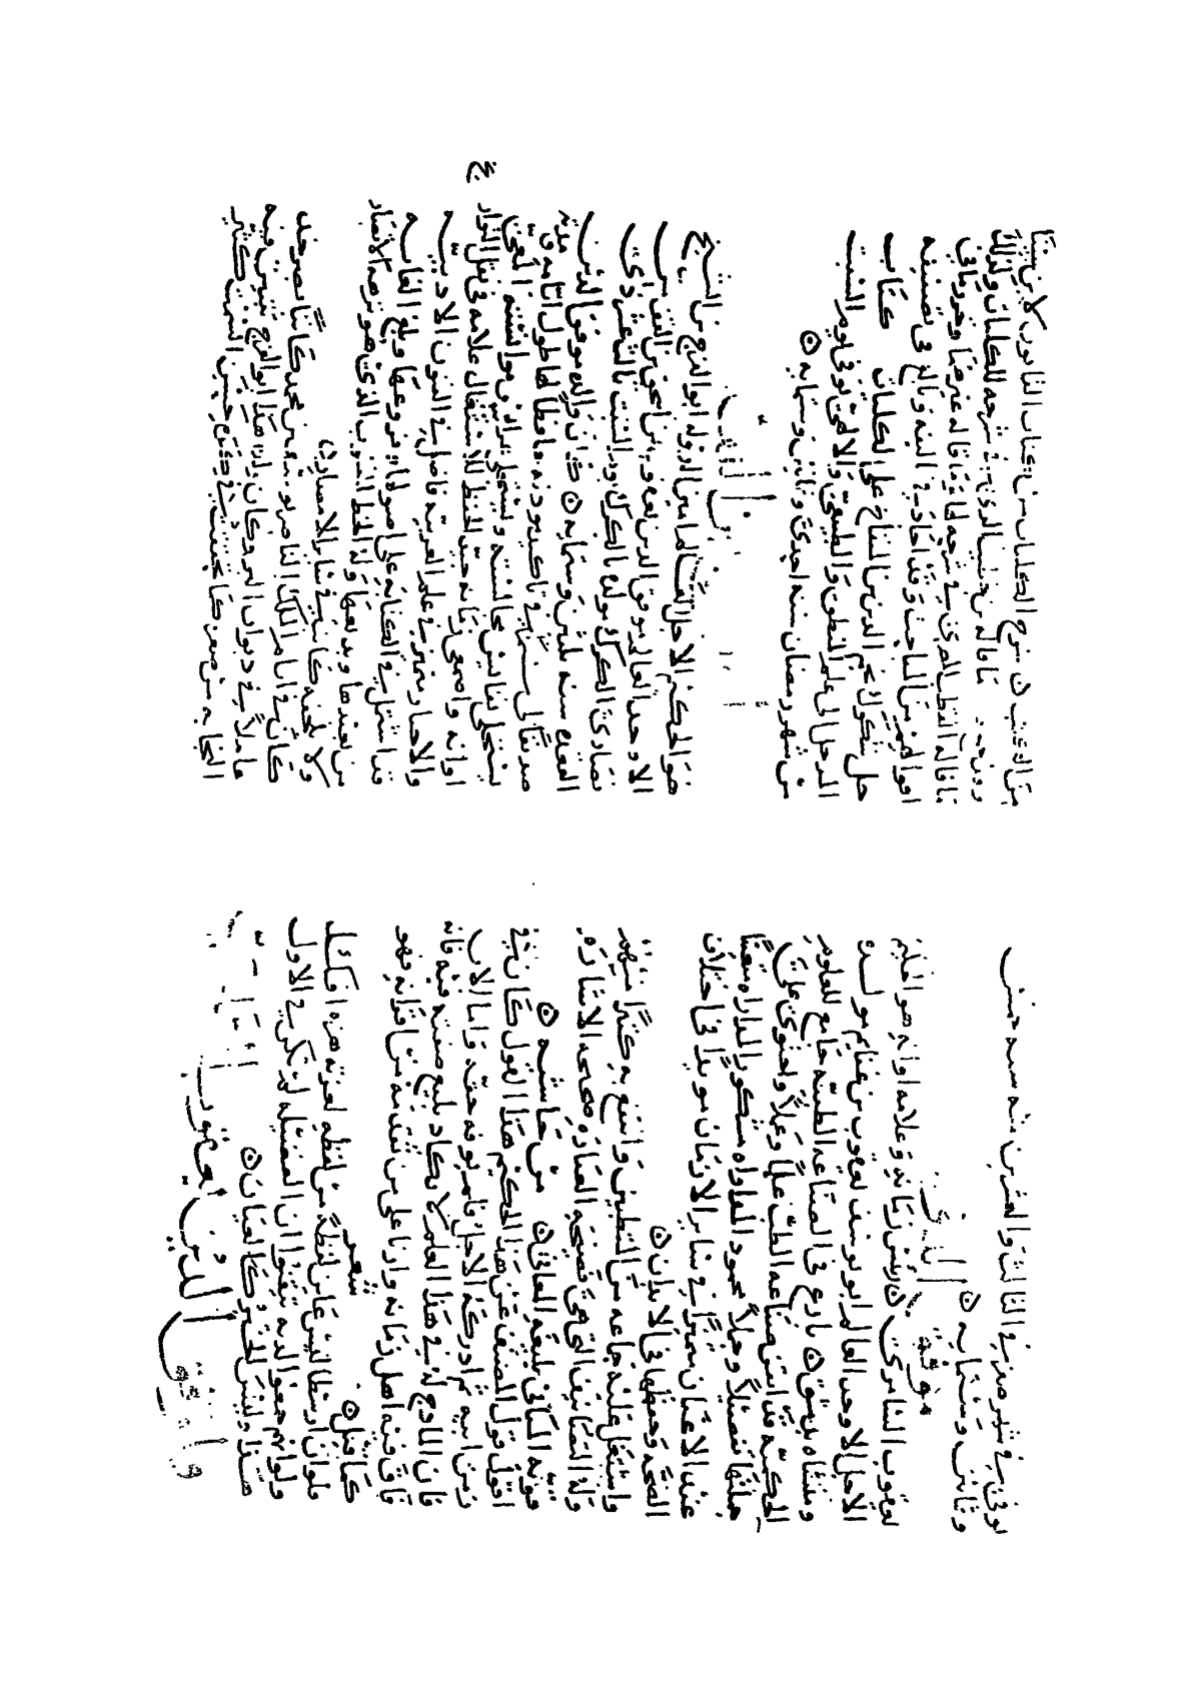 توفي في شهر صفر في الثالث والعشرين منه سنه خمس
وثمانين وستمايه
موفق الدين
يعقوب السامري رئيس زمانه وعلامه اوانه هو الحكيم
الاجل الاوحد العالم ابو يوسف يعقوب بن غنايم مولده
ومنشاه بدمشق بارع في الصناعه الطبيه جامع للعلوم
الحكميه قد اتقن صناعه الطب علما وعملا واحتوى على
جملتها تفصيلا وجملا محمود المداواه مشكور المداراه متعينا
عند الاعيان متميزا في سائر الازمان مويدا في اختلاف
الصحه وحفظها في الابدان
واشتغل عليه جماعه من المتطببين وانتفع به كثيرا منهم
وله التصانيف التي هي فصيحه العباره صحيحه الاشاره
قويه المباني بليغه المعاني من حاشيه
اقول قول المصنف عن هذا الحكيم هذا القول كان في
زمن ابيه ثم ادركه الاجل فلم يوفه حقه واما الاب
فان المادح له في هذا العلم لا يكاد يبلغ صفته فيه فانه
فاق فيه اهل زمانه واربا على من تقدمه من اقرانه فهو
كما قيل شعر
فلو ان ارسطاليس عاين لفظة من لفظه لعزته هزه افكل
ولو انهم جمعوا لديه تيقنوا ان الفضيله لم تكن في الاول
هذا وليس الخبر كالعيان
الدين يعقوب
من الكتب شرح الكليات من كتاب القانون لابن سينا
ما قاله ابن خطيب الري في شرحه للكليات وكذلك
ما قاله القطب المصري في شرحه لها وما قاله غيرهما وحرر ما في
اقوالهم من المباحث وقد اجاد في تاليفه وبالغ في تصنيفه
حل شكوك نجم الدين بن المنفاخ على الكليات كتاب
المدخل الى علم المنطق والطبيعي والالهي توفي في يوم السبت
من شهر رمضان سنه احدى وثمانين وستمايه
هو الحكيم الاجل العالم امين الدوله ابو الفرج بن الشيخ
الاوحد العالم موفق الدين يعقوب بن اسحق بن القف من
نصارى الكرك مولده بالكرك يوم السبت ثالث عشر ذي
القعده سنه ثلثين وستمايه كان والده موفق الدين
صديقا لي في تاكيد مودته حافظا لها طول ايامه ومدته
تستحلى نفايس مجالسته وتستجلى عرائس موانسته المعي
اوانه واصمعي زمانه جيد الحفظ للاشعار علامه في نقل التواريخ
والاخبار متميز في علم العربيه فاضل في الفنون الادبيه
قد اشتمل في الكتابه على اصولها وفروعها وبلغ الغايه
من بعيدها وبديعها وله الخط المنسوب الذي هو نزهة الابصار
ولا يلحقه كاتب في سائر الامصار
كان في ايام الملك الناصر يوسف بن محمد كاتبا بصرخد
عاملا في ديوان البر وكان ولده هذا ابو الفرج تتبين فيه
النجابه من صغره كما تحققت في كبره حسن السمت كثير